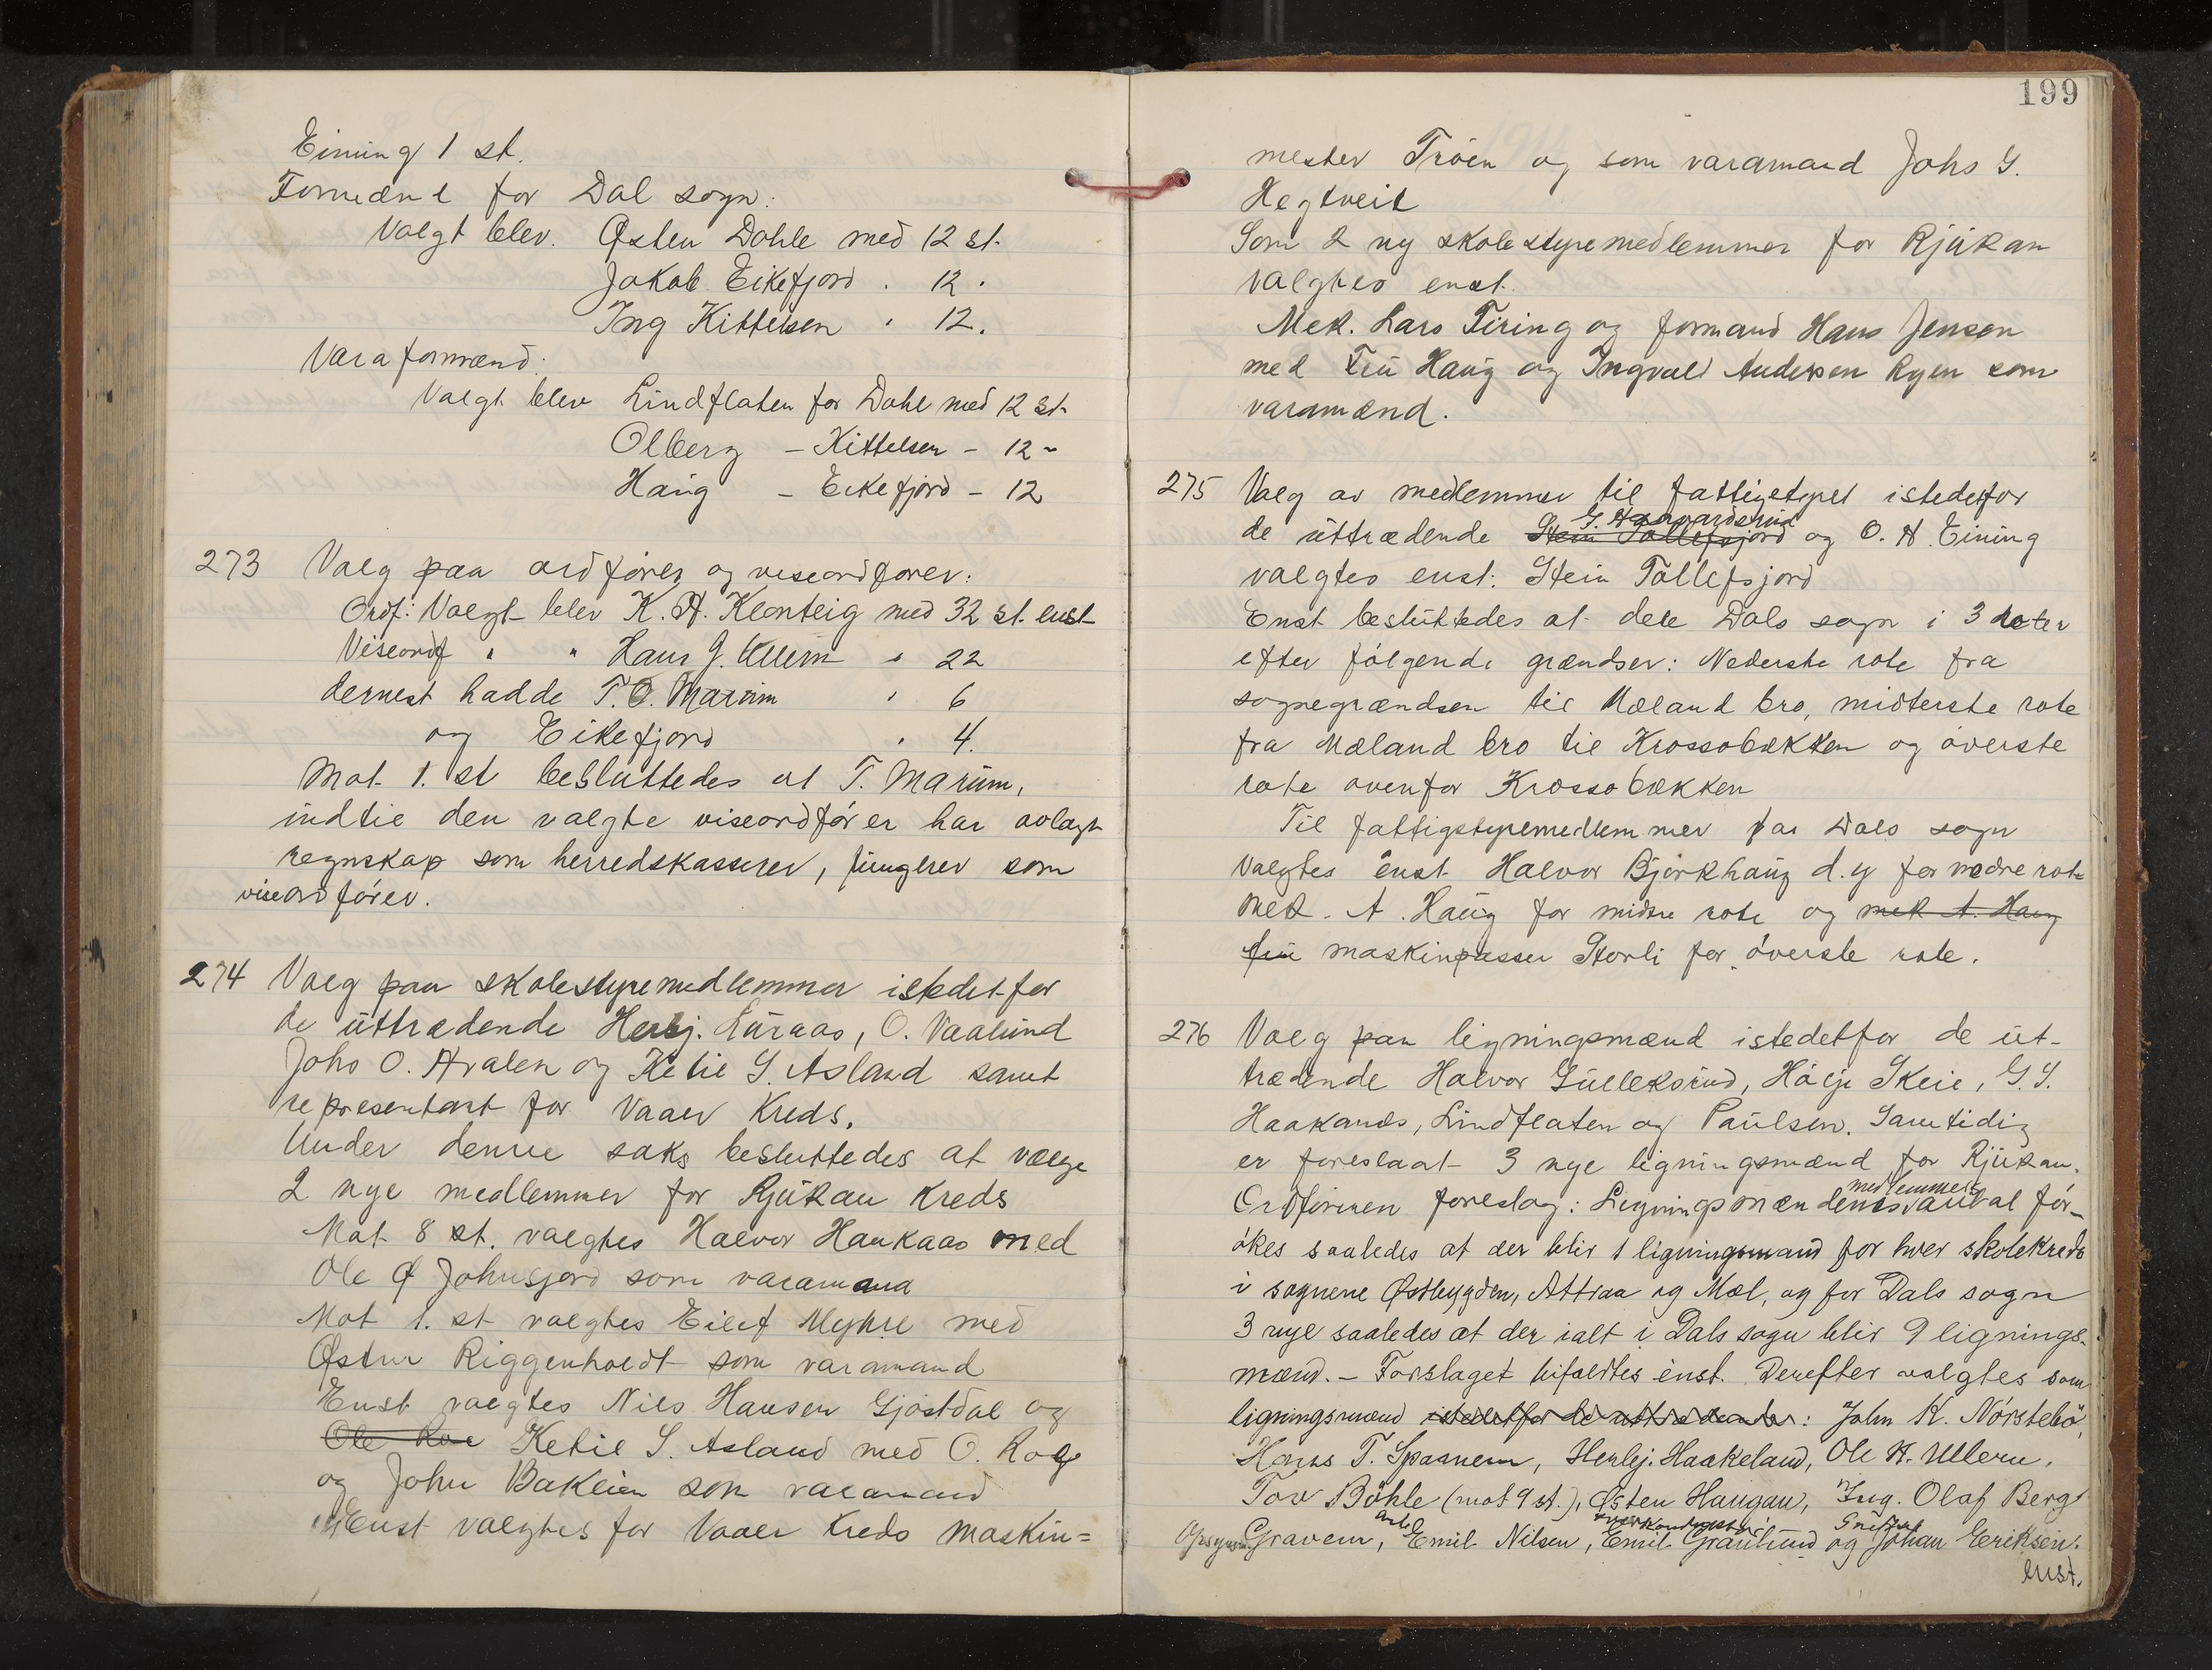 Eining 1 st.
Formænd for Dal sogn:
Valgt blev. Østen Dahle med 12 st.
Jakob Eikefjord . 12 .
Ing Kittelsen . 12.
Varaformænd:
Valgt blev Lindflaten for Dahle med 12 st.
Olberg – Kittelsen – 12 –
Haug – Eikefjord – 12
273 Valg paa ordfører og viseordfører:
Ordf: Valgt blev K. A. Klonteig med 32 st. enst
Viseordf " " Hans J. Ullern " 22
dernest hadde T. O. Marum " 6
og Eikefjord " 4.
Mot 1. st besluttedes at T. Marum,
indtil den valgte viseordfører har avlagt
regnskap som herredskasserer, fungerer som
viseordfører.
274 Valg paa skolestyremedlemmer istedetfor
de uttrædende Herbj. Luraas, O. Vaalund
Johs O. Aralen og Ketil S. Asland samt
representant for Vaaer Kreds.
Under denne saks besluttedes at vælge
2 nye medlemmer for Rjukan Kreds
Mot 8 st. valgtes Halvor Haukaas med
Ole Ø Johnsjord som varamand
Mot 1. st valgtes Eilef Myhre med
Østen Riggenholdt som varamand
Enst valgtes Nils Hansen Gjøstdal og
Ole Roe Ketil S. Asland med O. Roe
og John Bakken som varamand
Enst valgtes for Vaaer Kreds maskin=
199
mester Trøen og som varamand Johs G.
Hegtveit
Som 2 ny skolestyremedlemmer for Rjukan
valgtes enst.
Mek. Lars Tiring og formand Hans Jensen
med Fru Haug og Ingvald Andersen Ryen som
varamænd.
275 Valg av medlemmer til fattigstyret istedetfor
G. Haavardsrud
de uttrædende Stein Tollefsjord og O. H. Eining
valgtes enst: Stein Tollefsjord
Enst besluttedes at dele Dals sogn i 3 roter
efter følgende grændser: Nederste rote fra
sognegrændsen til Mæland bro, midterste rote
fra Mæland bro til Krossobækken og øverste
rote ovenfor Krossobækken
Til fattigstyremedlemmer for Dals sogn
valgtes enst Halvor Bjørkhaug d.y for nedre rote
Mek. A. Haug for midtre rote og mek A. Haug
fru maskinpasser Storli for øverste rote.
276 Valg paa ligningsmænd istedetfor de ut-
trædende Halvor Gulleksrud, Hølje Skeie, G. S.
Haakanæs, Lindflaten og Paulsen. Samtidig
er foreslaat 3 nye ligningsmænd for Rjukan.
medlemmers
Ordføreren foreslog: Ligningsmændenes antal for-
økes saaledes at der blir 1 ligningsmand for hver skolekreds
i sognene Østbygden, Attraa og Mæl, og for Dals sogn
3 nye saaledes at der ialt i Dals sogn blir 9 lignings-
mænd. – Forslaget bifaldtes enst. Derefter valgtes som
ligningsmænd istedetfor de uttrædende: John K. Nørstebø,
Hans T. Spaanem, Herbj. Haakeland, Ole H. Ullern,
Tov Bøhle (mot 9 st.), Østen Haugan, Ing. Olaf Berg
Arb.
Gravem, Emil Nilsen, Emil Granlund og Johan Eriksen.
enst.